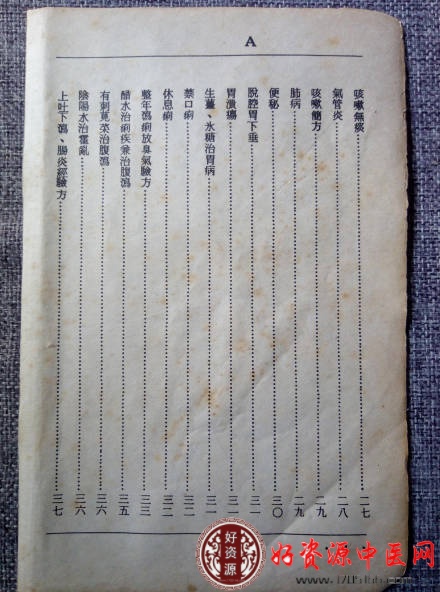 A
咳嗽無痰……二七
氣管炎……二八
咳嗽簡方……二九
肺病……二九
便秘……三〇
脫腔胃下垂……三一
胃潰瘍……三一
生薑、氷糖治胃病……三一
禁口痢……三二
休息痢……三二
整年瀉痢放臭氣驗方……三三
醋水治痢疾兼治腹瀉……三五
有刺莧菜治腹瀉……三六
陰陽水治霍亂……三六
上吐下瀉、腸炎經驗方……三七
好资源
好资源中医网